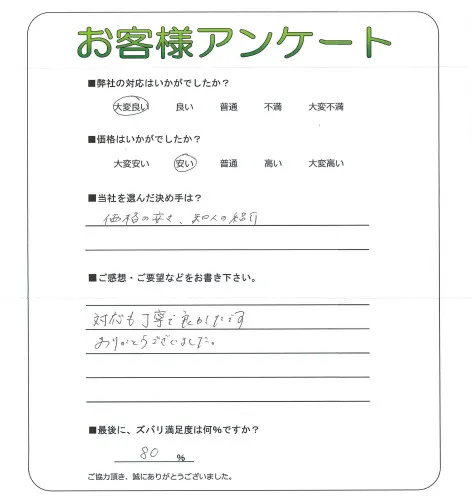 お客様アンケート
■弊社の対応はいかがでしたか?
大変良い 良い 普通 不満 大変不満
■価格はいかがでしたか?
大変安い 安い 普通 高い 大変高い
■当社を選んだ決め手は?
価格の安さ、知人の紹介
■ご感想・ご要望などをお書き下さい。
対応も丁寧で良かったです
ありがとうございました。
■最後に、ズバリ満足度は何%ですか?
80 %
ご協力頂き、誠にありがとうございました。